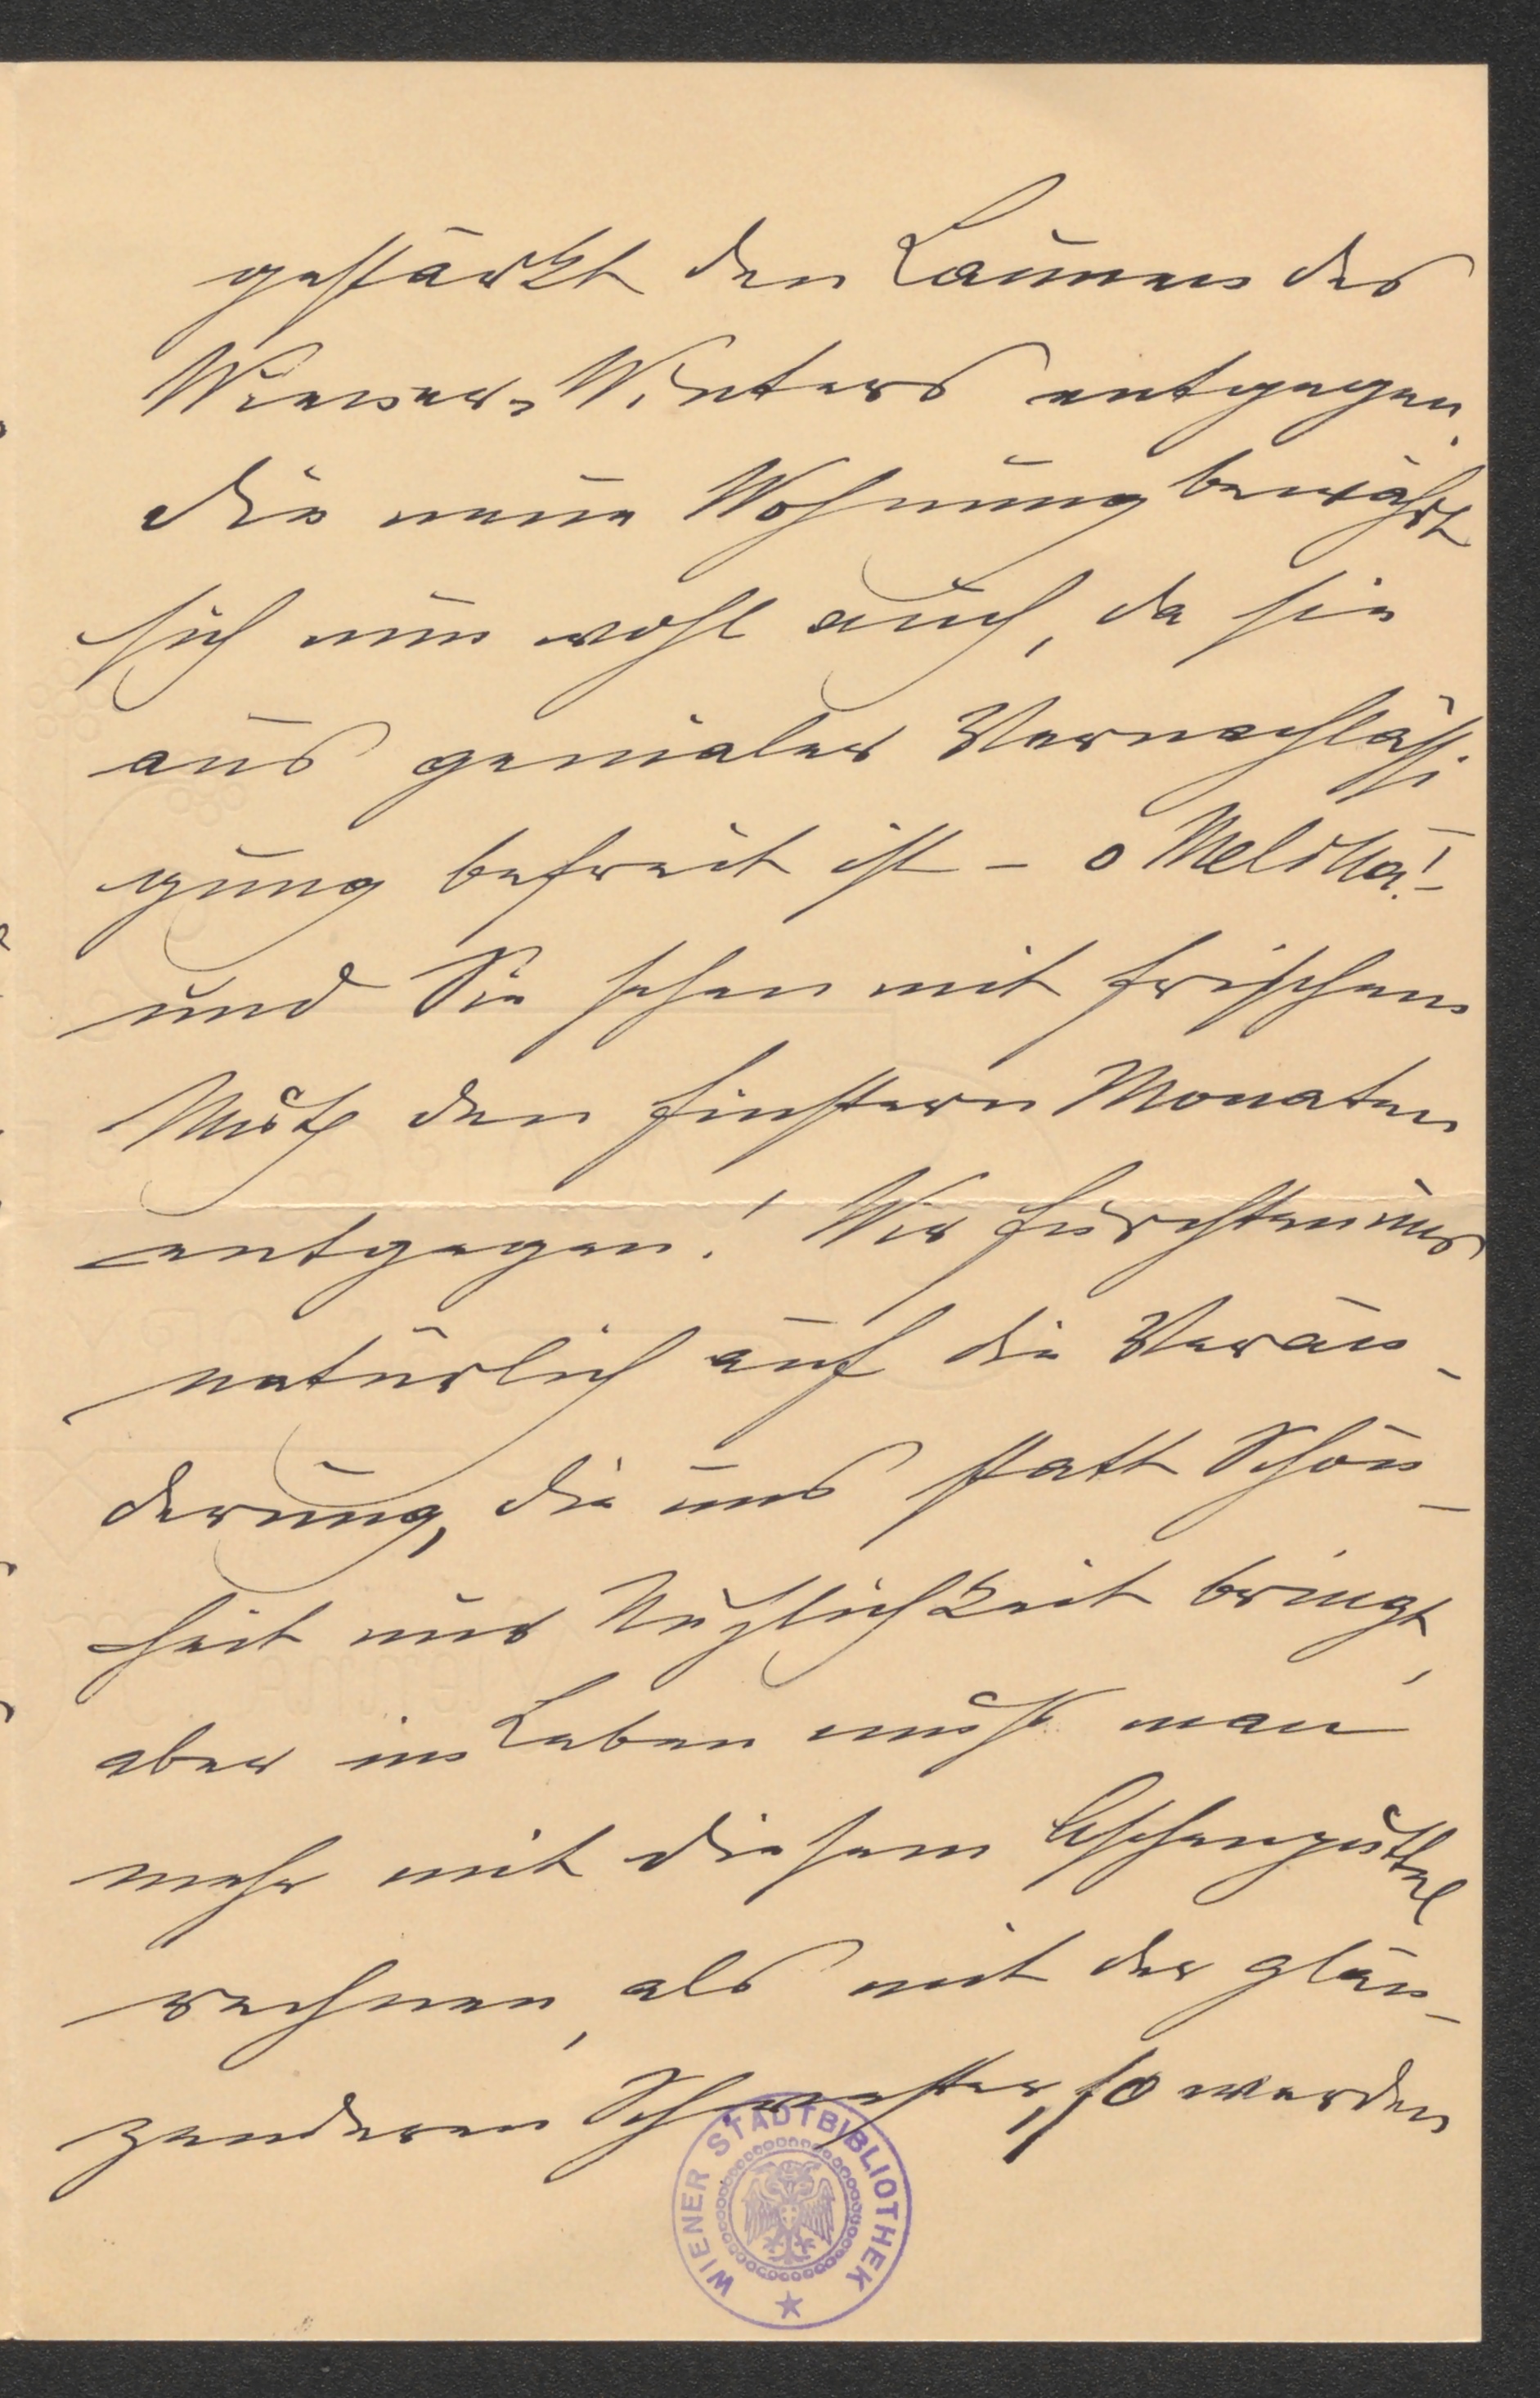 gestärkt den Launen des
Wiener-Winters entgegen.
Die neue Wohnung bewährt
sich nun wohl auch, da sie
aus genialer Vernachlässi
gung befreit ist – o Melitta! –
und Sie sehen mit frischem
Muth den finstern Monaten
entgegen! Wir fürchten uns
natürlich auf die Verän-
derung, die uns statt Schön-
heit nur Nützlichkeit bringt,
aber im Leben muß man
mehr mit diesem Aschenputtel
rechnen, als mit der glän-
zenderen Schwester, so werden
WIENER STADTBIBLIOTHEK